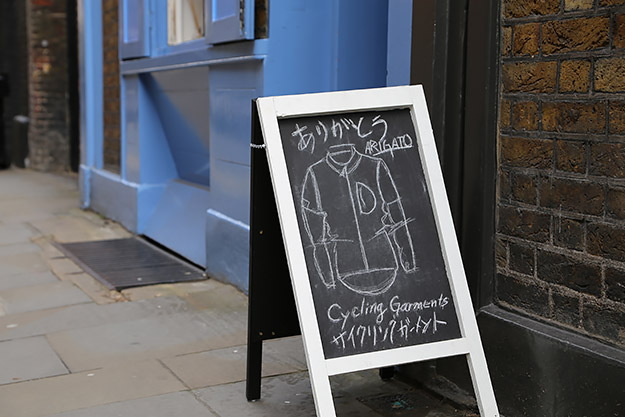 ありがとう
ARIGATO
Cycling Garments
サイクリングガーメント